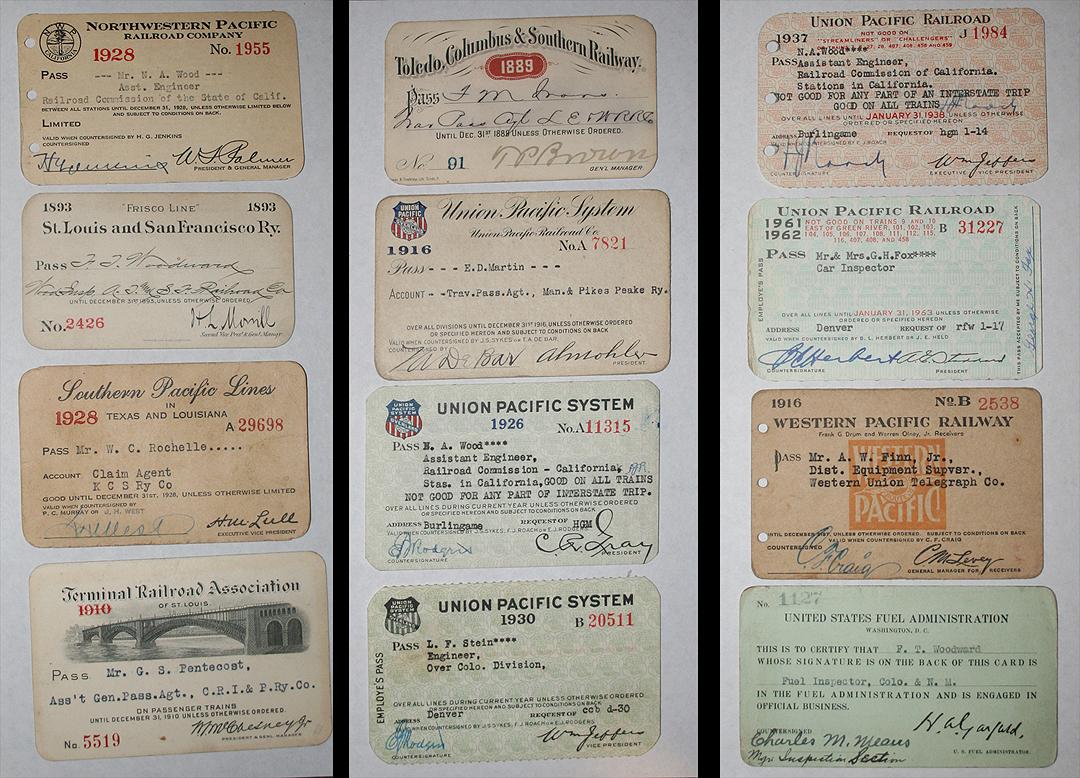 NORTHWESTERN PACIFIC
RAILROAD COMPANY
1928 No. 1955
PASS --- Mr. N. A. Wood ---
Asst. Engineer
Railroad Commission of the State of Calif.
BETWEEN ALL STATIONS UNTIL DECEMBER 31, 1928, UNLESS OTHERWISE LIMITED BELOW
AND SUBJECT TO CONDITIONS ON BACK.
LIMITED
VALID WHEN COUNTERSIGNED BY H. G. JENKINS
COUNTERSIGNED
PRESIDENT & GENERAL MANAGER
1893 "FRISCO LINE" 1893
St. Louis and San Francisco Ry.
Pass F. T. Woodward
UNTIL DECEMBER 31ST 1893, UNLESS OTHERWISE ORDERED.
No. 2426
Southern Pacific Lines
IN
1928 TEXAS AND LOUISIANA
A 29698
PASS Mr. W. C. Rochelle.....
ACCOUNT Claim Agent
K C S Ry Co
GOOD UNTIL DECEMBER 31ST, 1928, UNLESS OTHERWISE LIMITED
VALID WHEN COUNTERSIGNED BY
P. C. MURRAY OR J. H. WEST
H M Lull
EXECUTIVE VICE PRESIDENT
Terminal Railroad Association
1910 OF ST. LOUIS.
PASS Mr. G. S. Pentecost,
Ass't Gen.Pass.Agt., C.R.I.& P.Ry.Co.
ON PASSENGER TRAINS
UNTIL DECEMBER 31, 1910 UNLESS OTHERWISE ORDERED.
PRESIDENT & GENL MANAGER
No. 5519
Toledo, Columbus & Southern Railway.
1889
Pass
UNTIL DEC. 31ST 1889 UNLESS OTHERWISE ORDERED.
No 91 T P Brown
GEN'L MANAGER.
UNION PACIFIC
Union Pacific System
Union Pacific Railroad Co.
1916 No. A 7821
Pass - - - E.D.Martin - - -
ACCOUNT - -Trav.Pass.Agt., Man.& Pikes Peake Ry.
OVER ALL DIVISIONS UNTIL DECEMBER 31ST 1916, UNLESS OTHERWISE
ORDERED AND SUBJECT TO CONDITIONS ON BACK.
VALID WHEN COUNTERSIGNED BY J.S.SYKES OR E.A.DE BAR.
COUNTERSIGNED BY
PRESIDENT
UNION PACIFIC SYSTEM
1926 No. A 11315
PASS N. A. Wood****
Assistant Engineer,
Railroad Commission - California,
Stas. in California, GOOD ON ALL TRAINS
NOT GOOD FOR ANY PART OF INTERSTATE TRIP.
OVER ALL LINES DURING CURRENT YEAR UNLESS OTHERWISE ORDERED
OR SPECIFIED HEREON AND SUBJECT TO CONDITIONS ON BACK
ADDRESS Burlingame REQUEST OF HGM
C. R. Gray
COUNTERSIGNATURE PRESIDENT
UNION PACIFIC SYSTEM
1930 B 20511
PASS L. F. Stein****
Engineer,
Over Colo. Division,
EMPLOYE'S PASS
OVER ALL LINES DURING CURRENT YEAR UNLESS OTHERWISE ORDERED
OR SPECIFIED HEREON AND SUBJECT TO CONDITIONS ON BACK
ADDRESS Denver REQUEST OF ccb d-30
Wm Jeffers
COUNTERSIGNATURE VICE PRESIDENT
UNION PACIFIC RAILROAD
1937 NOT GOOD ON J 1984
"STREAMLINERS" OR "CHALLENGERS"
N.A.Wood****
PASS Assistant Engineer,
Railroad Commission of California.
Stations in California.
NOT GOOD FOR ANY PART OF AN INTERSTATE TRIP
GOOD ON ALL TRAINS
OVER ALL LINES UNTIL JANUARY 31, 1938 UNLESS OTHERWISE
ORDERED OR SPECIFIED HEREON
ADDRESS Burlingame REQUEST OF hgm 1-14
Wm Jeffers
COUNTERSIGNATURE EXECUTIVE VICE PRESIDENT
UNION PACIFIC RAILROAD
1961 NOT GOOD ON TRAINS 9 AND 10
1962 EAST OF GREEN RIVER, 101, 102, 103, B 31227
104, 105, 106, 107, 108, 111, 112, 115,
116, 407, 408, AND 458
PASS Mr.& Mrs.G.H.Fox****
Car Inspector
EMPLOYE'S PASS
OVER ALL LINES UNTIL JANUARY 31, 1963 UNLESS OTHERWISE
ORDERED OR SPECIFIED HEREON
ADDRESS Denver REQUEST OF rfw 1-17
VALID WHEN COUNTERSIGNED BY D. L. HERBERT OR J. E. HELD
COUNTERSIGNATURE PRESIDENT
THIS PASS ACCEPTED BY ME SUBJECT TO CONDITIONS ON BACK
1916 No. B 2538
WESTERN PACIFIC RAILWAY
Frank G. Drum and Warren Olney, Jr. Receivers
PASS Mr. A. W. Finn, Jr.,
Dist. Equipment Supvsr.,
Western Union Telegraph Co.
WESTERN
PACIFIC
UNTIL DECEMBER 31ST, UNLESS OTHERWISE ORDERED. SUBJECT TO CONDITIONS ON BACK
VALID WHEN COUNTERSIGNED BY C. F. CRAIG
COUNTERSIGNED
C F Craig C M Levey
GENERAL MANAGER FOR RECEIVERS
No. 1127
UNITED STATES FUEL ADMINISTRATION
WASHINGTON, D. C.
THIS IS TO CERTIFY THAT F. T. Woodward
WHOSE SIGNATURE IS ON THE BACK OF THIS CARD IS
Fuel Inspector, Colo. & N. M.
IN THE FUEL ADMINISTRATION AND IS ENGAGED IN
OFFICIAL BUSINESS.
H. A. Garfield,
COUNTERSIGNED
U. S. FUEL ADMINISTRATOR.
Charles M. Means
Mgr Inspection Section